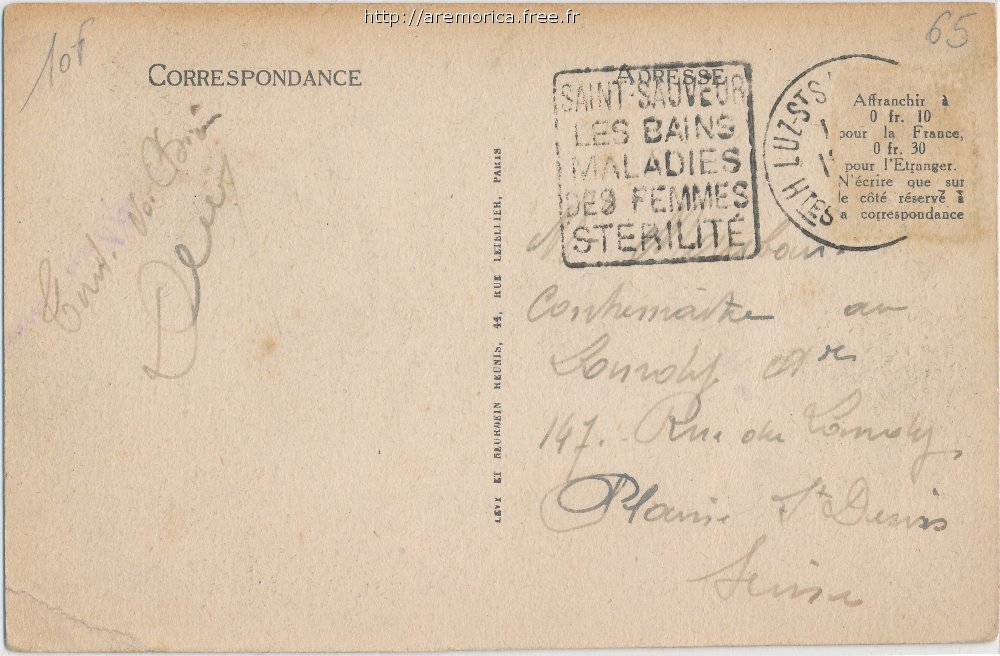 http://aremorica.free.fr
10f
65
CORRESPONDANCE
ADRESSE
SAINT-SAUVEUR
LES BAINS
MALADIES
DES FEMMES
STERILITÉ
LUZ-ST S
HTES
Affranchir à
0 fr. 10
pour la France,
0 fr. 30
pour l'Etranger.
N'écrire que sur
le côté réservé à
a correspondance
LEVY ET NEURDEIN REUNIS, 44, RUE LETELLIER, PARIS
M
Contremaître au
Landy
147. Rue du Landy
Plaine St Denis
Seine